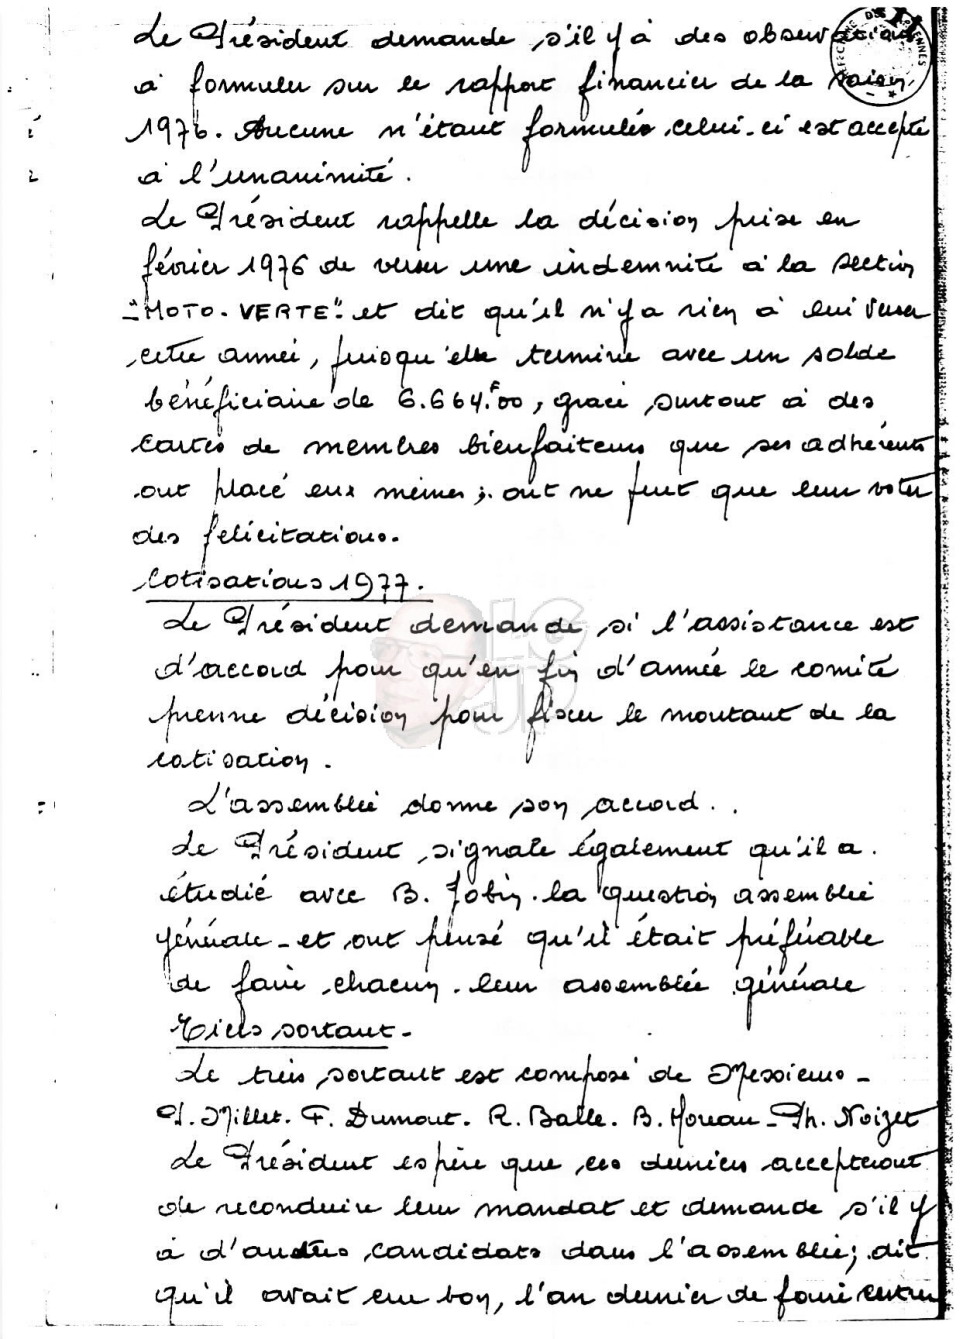 Le Président demande s'il y à des observations
à formuler sur le rapport financier de la saison
1976. Aucune n'étant formulée, celui-ci est accepté
à l'unanimité.
Le Président rappelle la décision prise en
février 1976 de verser une indemnité à la section
"MOTO-VERTE" et dit qu'il n'y a rien à lui verser
cette année, puisqu'elle termine avec un solde
bénéficiaire de 6.664F00, grace surtout à des
cartes de membres bienfaiteurs que ses adhérents
ont placé eux mêmes; ont ne peut que leur voter
des félicitations.
Cotisations 1977.
Le Président demande si l'assistance est
d'accord pour qu'en fin d'année le comité
prenne décision pour fixer le montant de la
cotisation.
L'assemblée donne son accord..
Le Président signale également qu'il a
étudié avec B. Jobin la question assemblée
générale - et ont pensé qu'il était préférable
de faire chacun leur assemblée générale
Tiers sortant-
Le tiers sortant est composé de Messieurs-
Millet. F. Dumont. R. Balle. B. Moreau - Ph. Noizet
Le Président espère que ces derniers accepteront
de reconduire leur mandat et demande s'il y
à d'autres candidats dans l'assemblée; dit
qu'il avait cru bon, l'an dernier de faire entrer
LG
JP